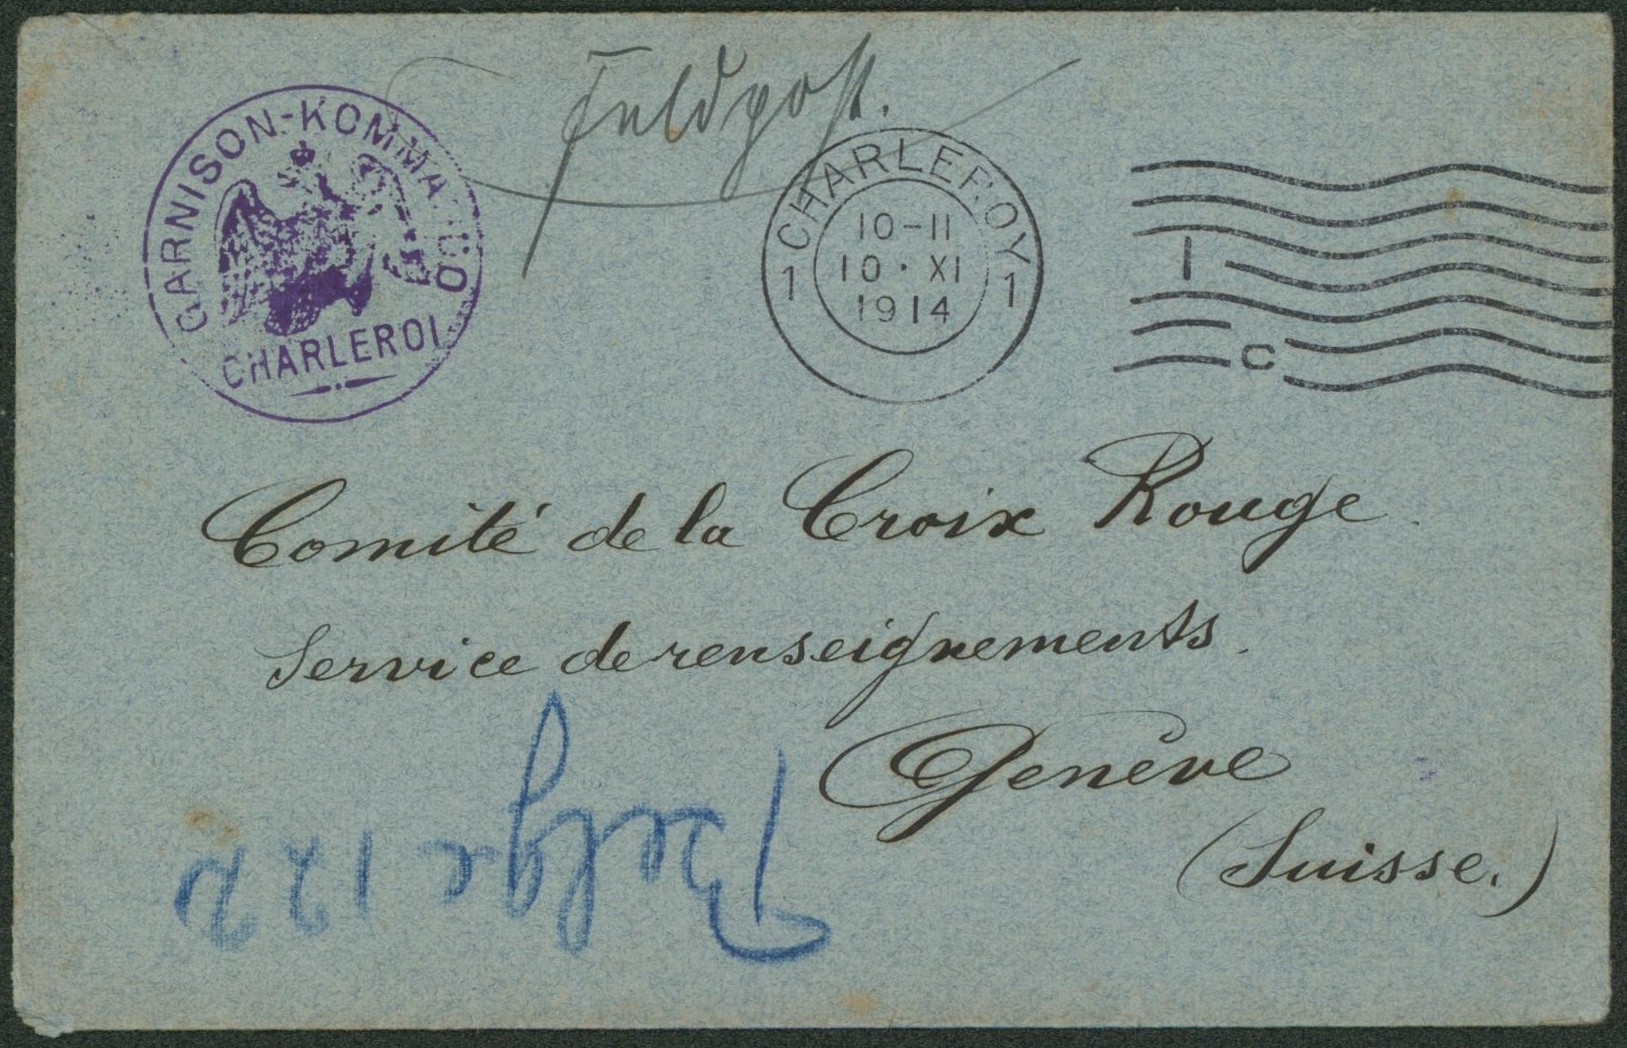 Feldpost.
GARNISON-KOMMANDO
CHARLEROI
CHARLEROY
1 1
10-11
10 · XI
1914
1
C
Comité de la Croix Rouge
Service de renseignements.
Genève
(Suisse.)
Belge 122